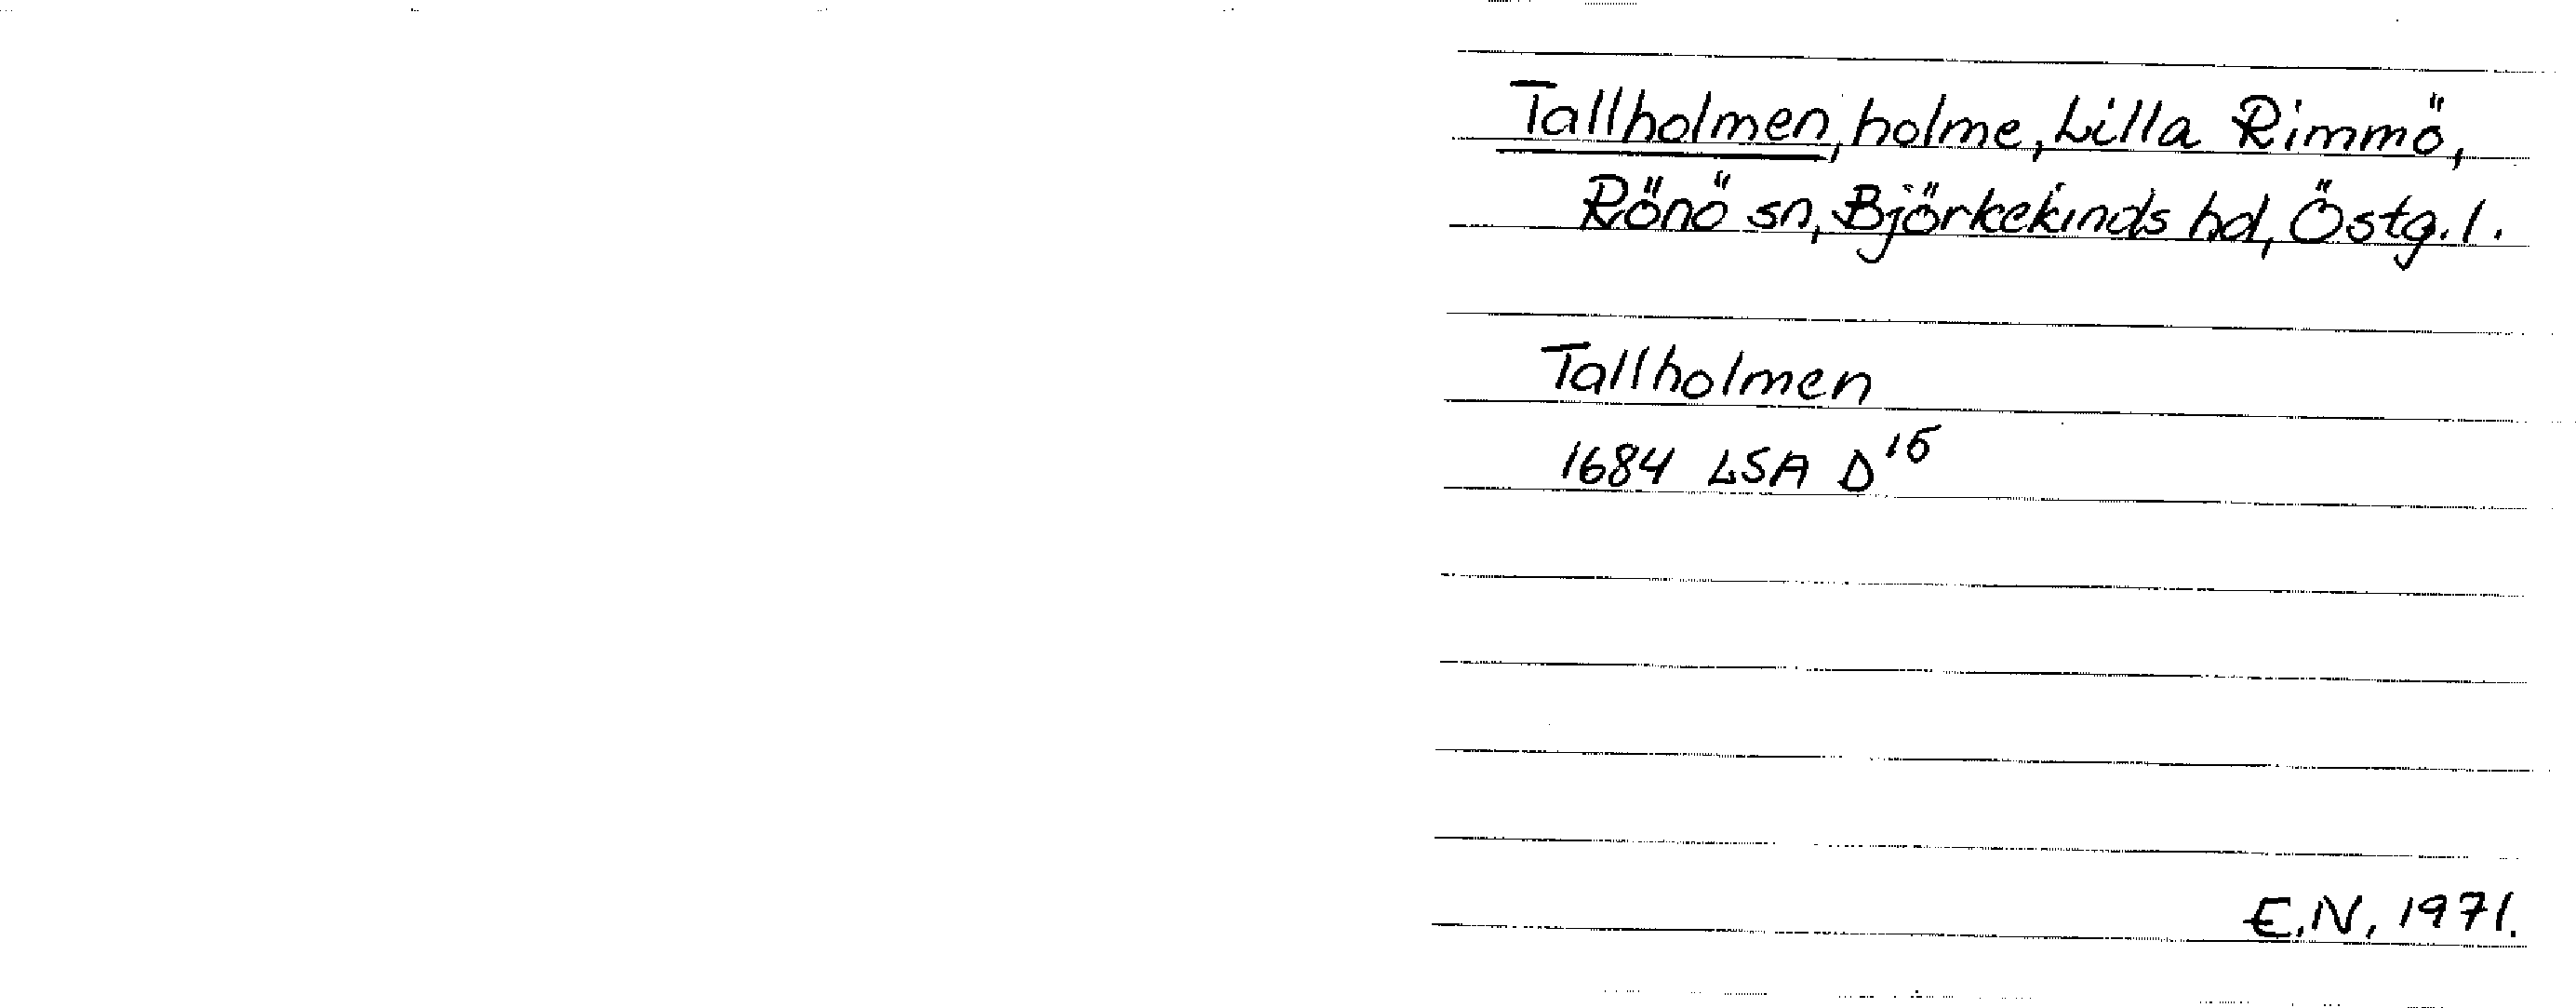 Tallholmen, holme, Lilla Rimmö,
Rönö sn, Björkekinds hd, Östg. l.
Tallholmen
1684 LSA D¹⁵
E.N, 1971.